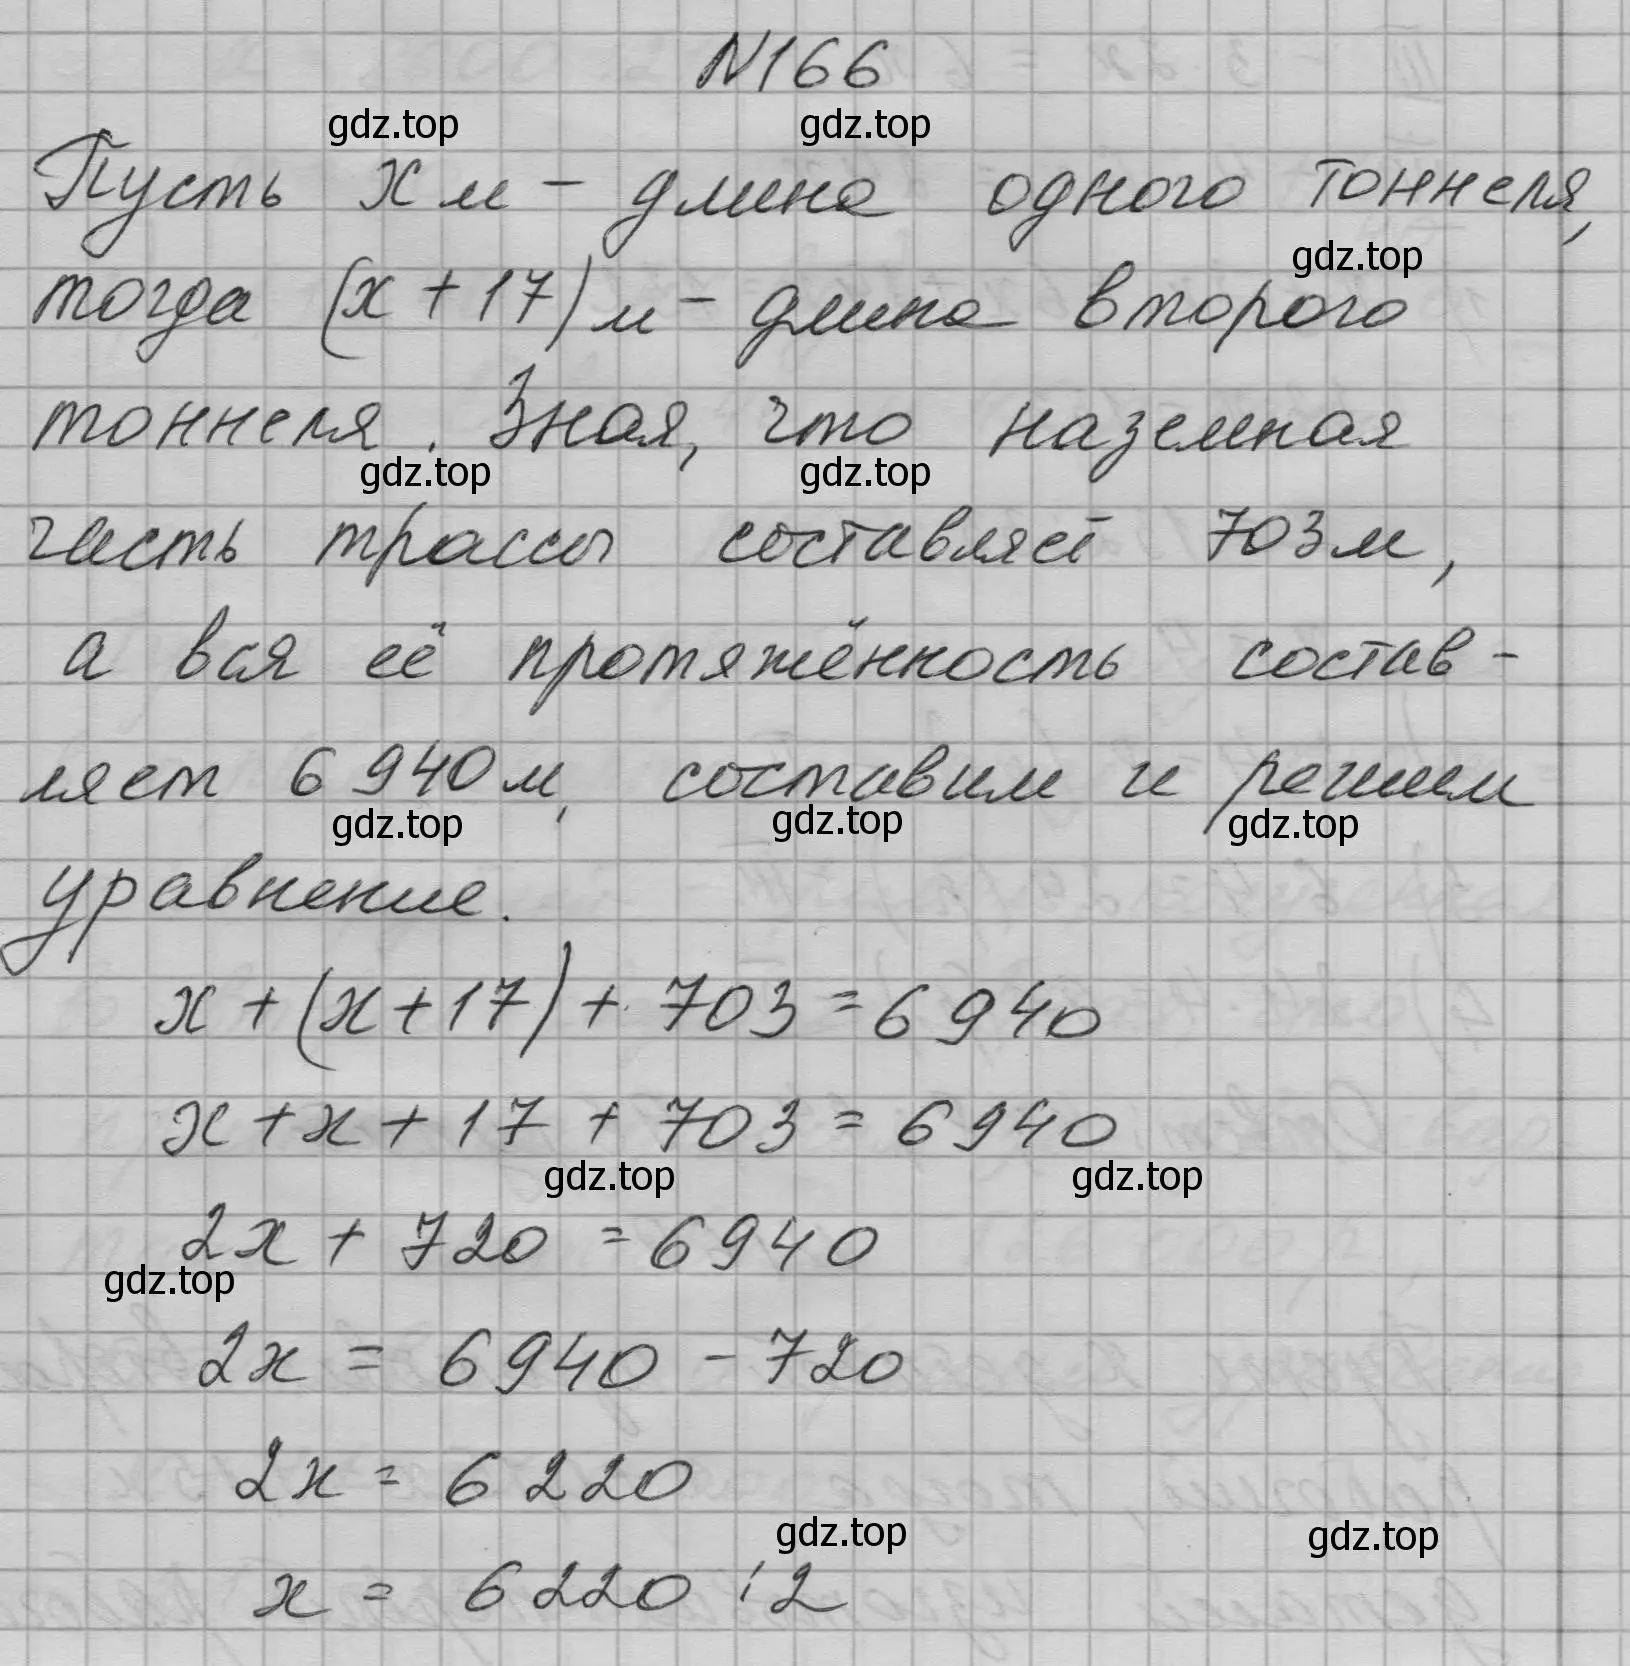 №166
gdz.top gdz.top
Пусть x м - длина одного тоннеля,
gdz.top
тогда (x + 17) м - длина второго
тоннеля. Зная, что наземная
gdz.top gdz.top
часть трассы составляет 703 м,
а вся её протяжённость состав-
ляет 6 940 м, составим и решим
gdz.top gdz.top gdz.top
уравнение.
x + (x + 17) + 703 = 6 940
x + x + 17 + 703 = 6 940
gdz.top gdz.top
2x + 720 = 6 940
gdz.top
2x = 6 940 - 720
2x = 6 220
gdz.top gdz.top
x = 6 220 : 2